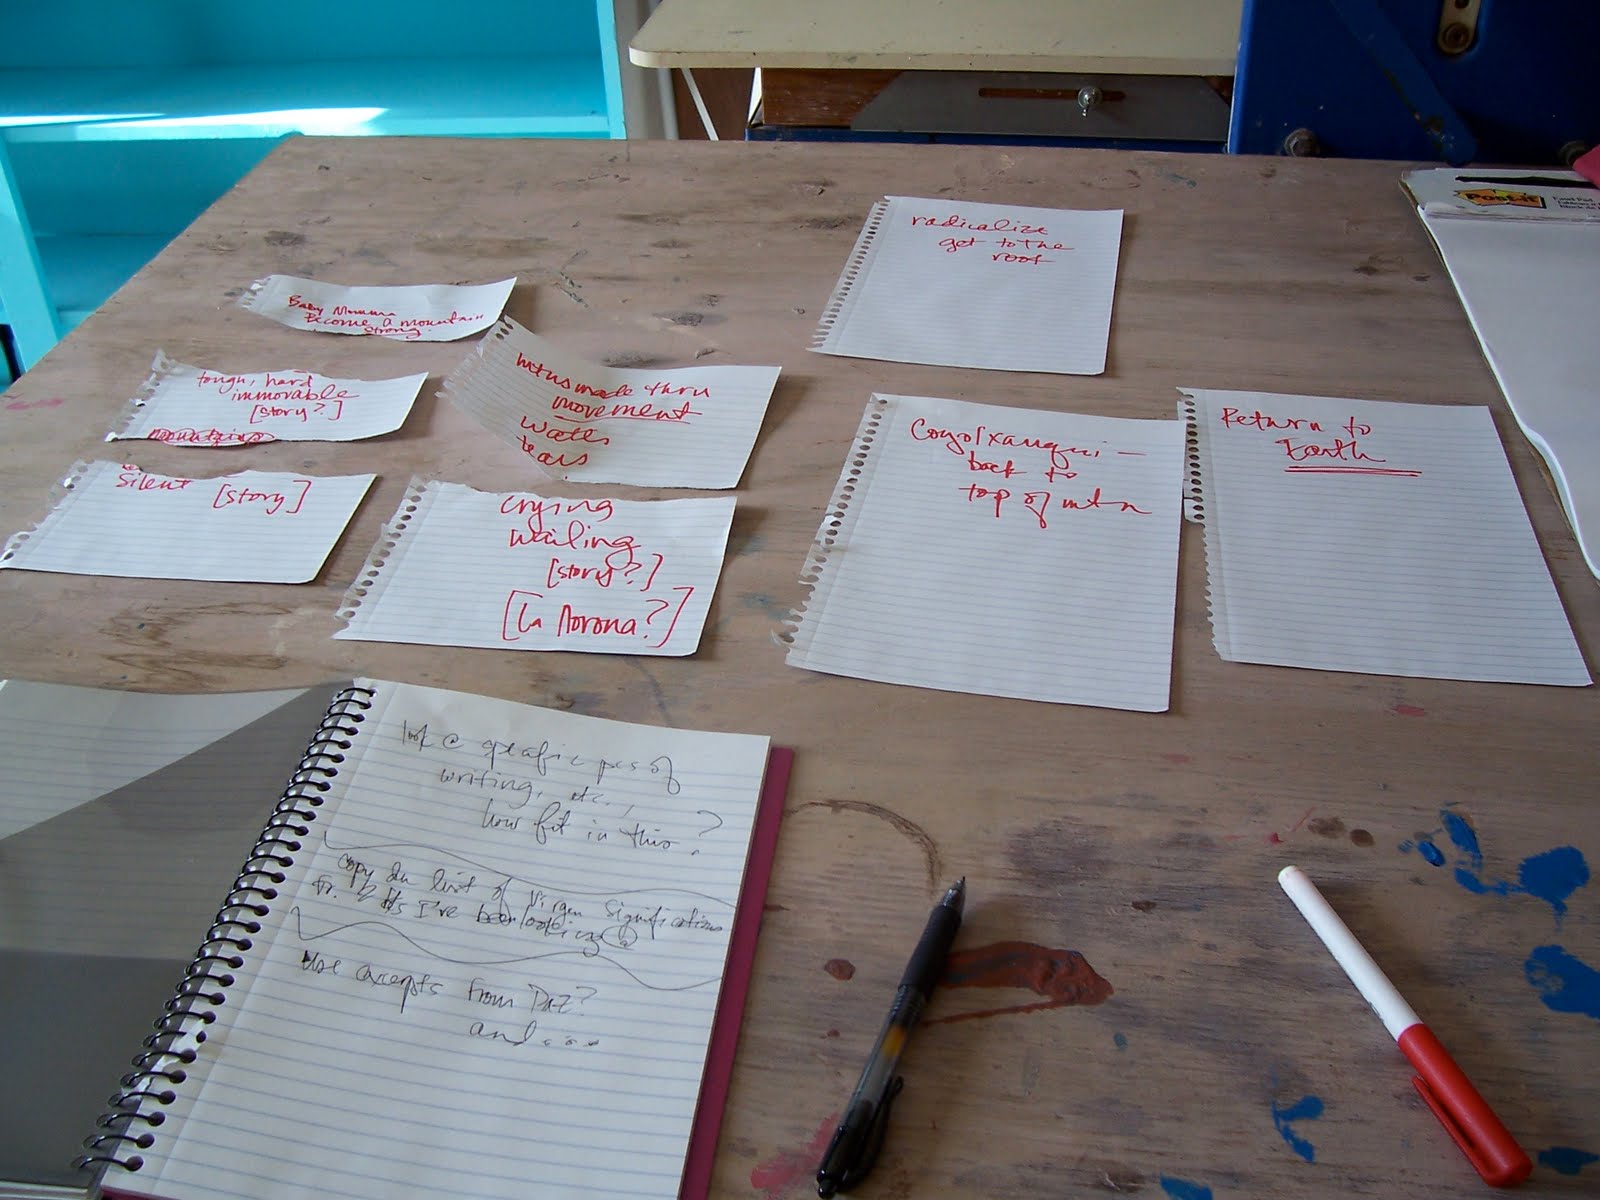 radicalize
get to the
root
Baby Mummra
Become a mountain
strong.
tough, hard
immovable
[story?]
mountains
mtns made thru
movement
water
tears
Silent [story]
crying
wailing
[story?]
[La llorona?]
Coyolxauqui —
back to
top of mtn
Return to
Earth
Post-it
look @ specific pcs of
writing, etc.,
how fit in this?
copy down list of Virgen significations
fr. I've been looking @
use excerpts from
and ...